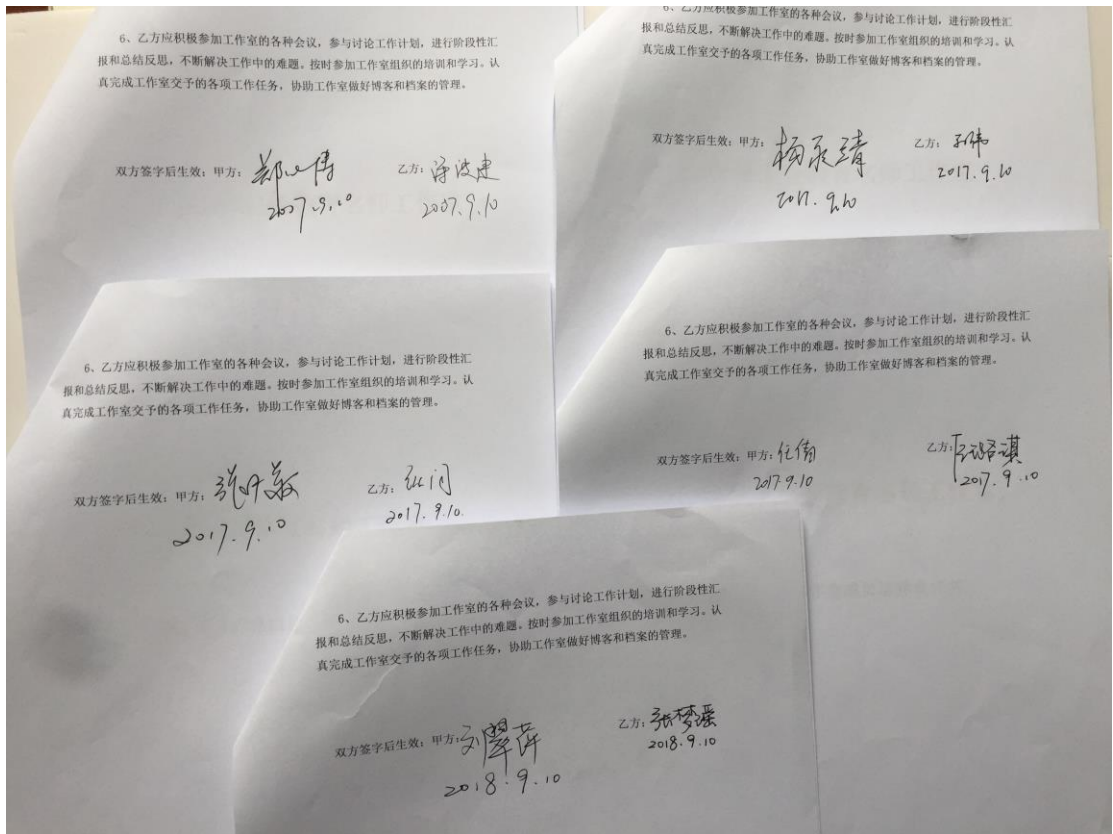 6、乙方应积极参加工作室的各种会议，参与讨论工作计划，进行阶段性汇
报和总结反思，不断解决工作中的难题。按时参加工作室组织的培训和学习。认
真完成工作室交予的各项工作任务，协助工作室做好博客和档案的管理。
双方签字后生效：甲方： 乙方：
2007.9.10 2007.9.10
6、乙方应积极参加工作室的各种会议，参与讨论工作计划，进行阶段性汇
报和总结反思，不断解决工作中的难题。按时参加工作室组织的培训和学习。认
真完成工作室交予的各项工作任务，协助工作室做好博客和档案的管理。
双方签字后生效：甲方： 乙方：
2017.9.10 2017.9.10
6、乙方应积极参加工作室的各种会议，参与讨论工作计划，进行阶段性汇
报和总结反思，不断解决工作中的难题。按时参加工作室组织的培训和学习。认
真完成工作室交予的各项工作任务，协助工作室做好博客和档案的管理。
双方签字后生效：甲方： 乙方：
2017.9.10 2017.9.10.
6、乙方应积极参加工作室的各种会议，参与讨论工作计划，进行阶段性汇
报和总结反思，不断解决工作中的难题。按时参加工作室组织的培训和学习。认
真完成工作室交予的各项工作任务，协助工作室做好博客和档案的管理。
双方签字后生效：甲方：任倩 乙方：
2017.9.10 2017.9.10
6、乙方应积极参加工作室的各种会议，参与讨论工作计划，进行阶段性汇
报和总结反思，不断解决工作中的难题。按时参加工作室组织的培训和学习。认
真完成工作室交予的各项工作任务，协助工作室做好博客和档案的管理。
双方签字后生效：甲方：刘翠萍 乙方：张梦瑶
2018.9.10 2018.9.10